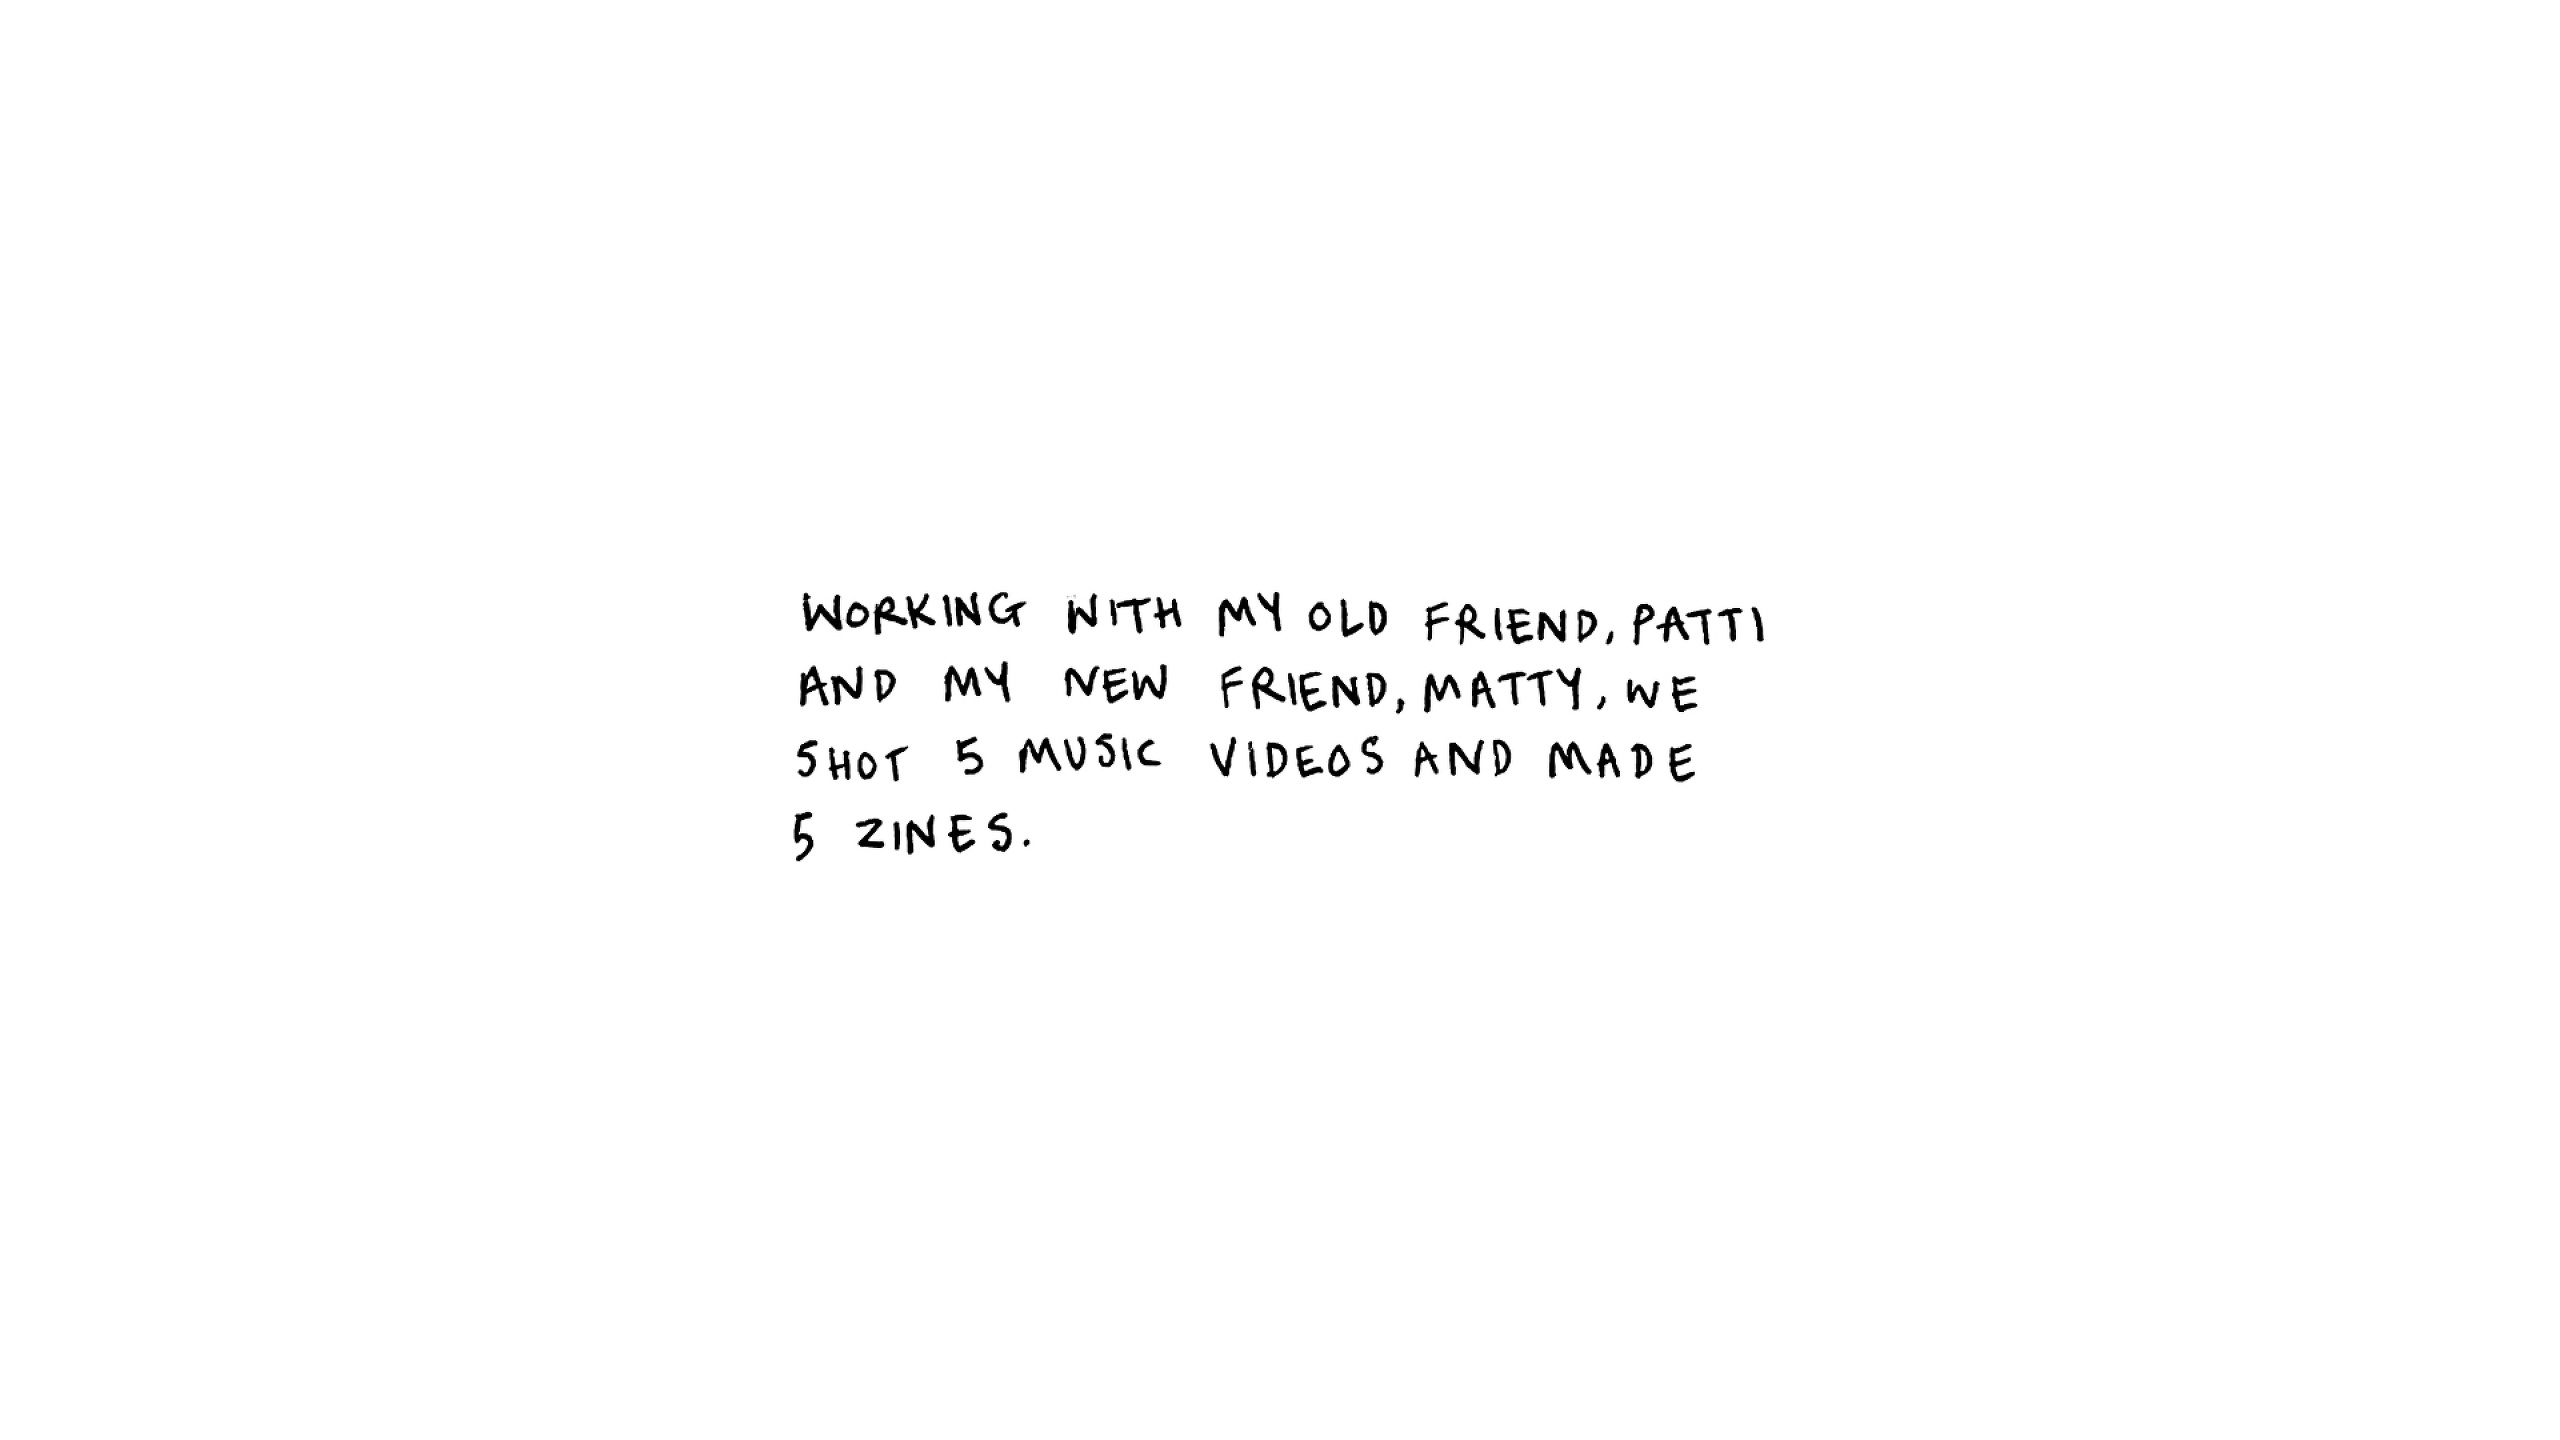 WORKING WITH MY OLD FRIEND, PATTI
AND MY NEW FRIEND, MATTY, WE
SHOT 5 MUSIC VIDEOS AND MADE
5 ZINES.